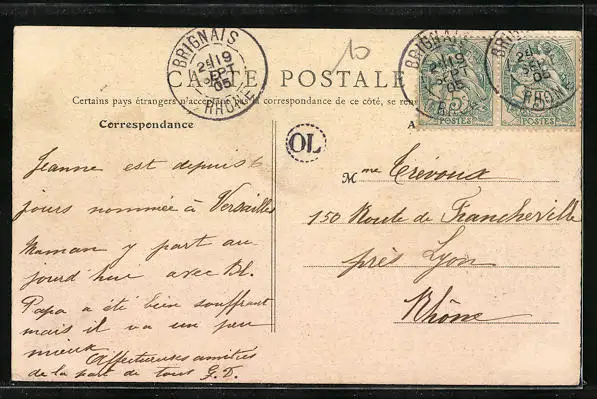 BRIGNAIS
2E
19
SEPT
05
RHONE
BRIGNAIS
2E
19
SEPT
05
RHONE
BRIGNAIS
2E
19
SEPT
05
RHONE
10
CARTE POSTALE
5
POSTES
POSTES
Certains pays étrangers n'acceptent pas la correspondance de ce côté, se rens
Correspondance
A
OL
Jeanne est depuis 6
jours nommée à Versailles
Maman y part au
jourd'hui avec Bl.
Papa a été bien souffrant
mais il va un peu
mieux Affectueuses amitiés
de la part de tous G.D.
Mme Trévoux
150 Route de Francheville
près Lyon
Rhône